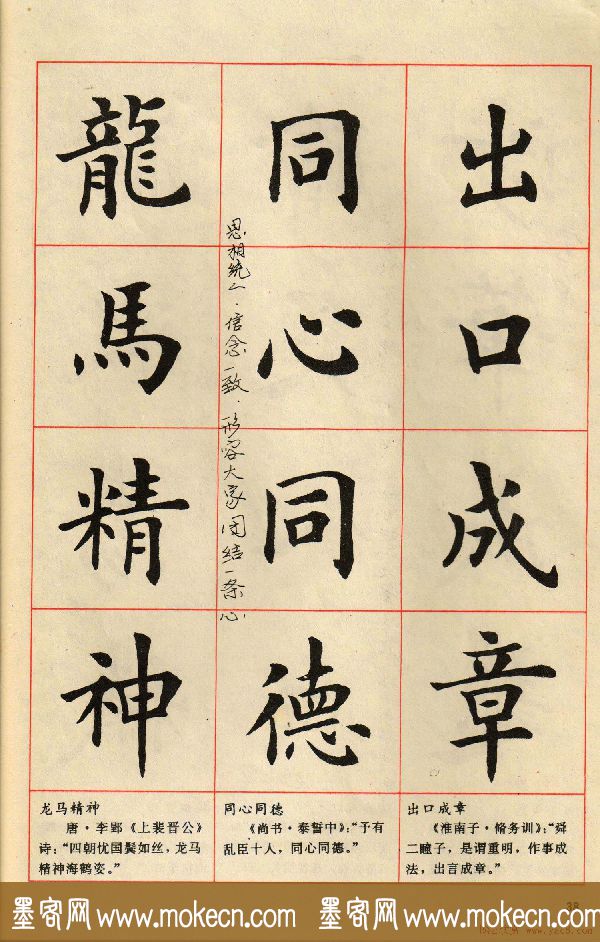 出口成章
同心同德
龍馬精神
思想统一．信念一致．形容大家团结一条心
出口成章
《淮南子·脩务训》：“舜
二瞳子，是谓重明，作事成
法，出言成章。”
同心同德
《尚书·泰誓中》：“予有
乱臣十人，同心同德。”
龙马精神
唐·李郢《上裴晋公》
诗：“四朝忧国鬓如丝，龙马
精神海鹤姿。”
38
墨客网 www.mokecn.com 墨客网 www.mokecn.com